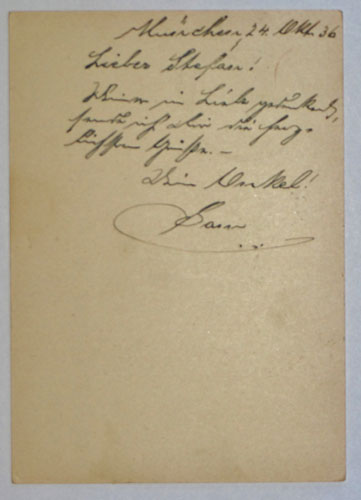 München, 24. Okt. 36
Lieber Stefan!
Deiner in Liebe gedenkend,
sende ich Dir die herz-
lichsten Grüße. –
Dein Onkel!